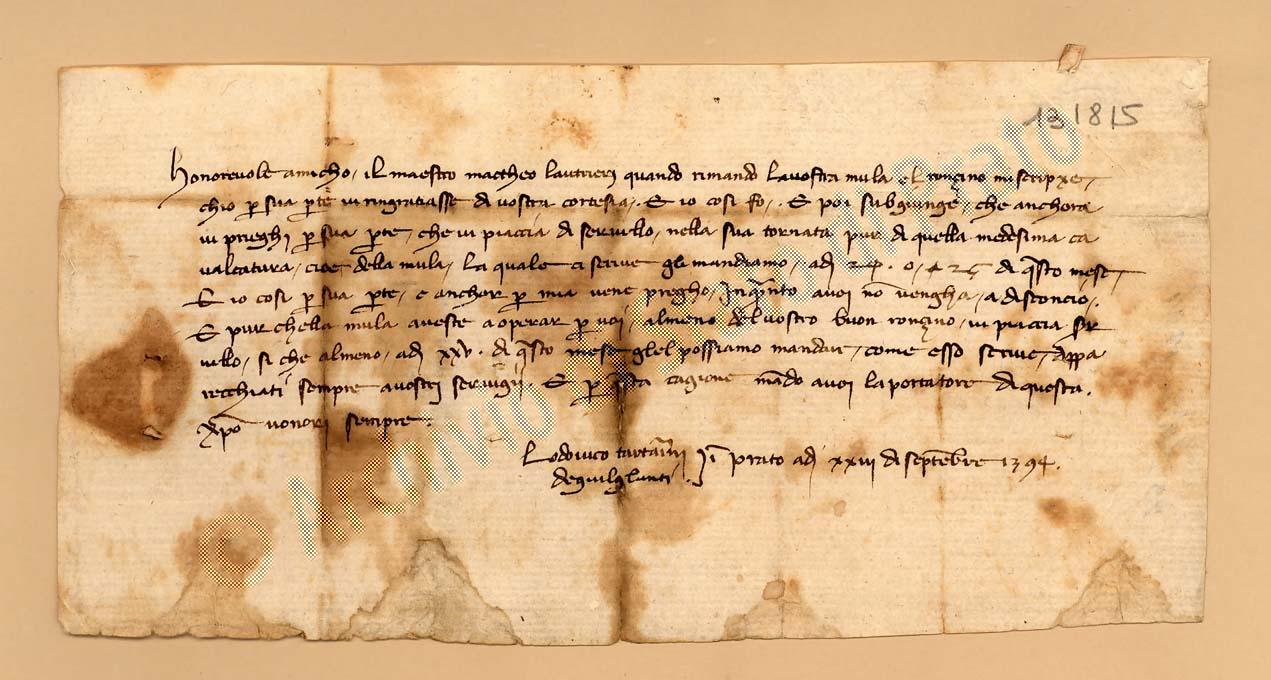 131815
Honorevole amicho, il maestro mattheo lautrieri quando rimandò la vostra mula e l ronçino mi scripxe,
chio p sua pte vi ringratiasse di vostra cortesia. E io cosi fo. E poi subgiunge, che anchora
vi prieghi p sua pte, che vi piaccia di servillo, nella sua tornata pur di quella medesima ca
valcatura, cioe della mula, la quale ci scrive gli mandiamo, adi 24 o, 25 di qsto mese,
E io cosi p sua pte, e anchor p mia vene priegho, Inqnto avoi nō vengha, a disconcio.
E pur chella mula aveste a operar p voi, almeno del vostro buon ronçino, vi piaccia ser
villo, si che almeno, adi xxv. di qsto mese glel possiamo mandare, come esso scrive, Appa
recchiati sempre avostri servigii. E p qsta cagione mādo avoi la portatore di questa.
Xpō vonori sempre.
Lodovico
In prato adi xxiii di septēbre 1394.
© Archivio di Stato di Prato